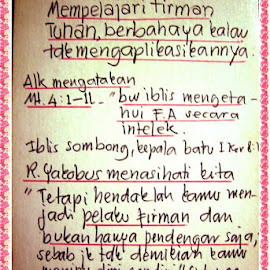 Mempelajari firman
Tuhan, berbahaya kalau
tdk mengaplikasikannya.
Alk mengatakan
Mt. 4:1-11. "bw iblis mengeta-
hui F.A secara
intelek.
Iblis sombong, kepala batu I Kor 8:1
R. Yakobus menasihati kita
"Tetapi hendaklah kamu men-
jadi pelaku firman dan
bukan hanya pendengar saja,
sebab jk tdk demikian kamu